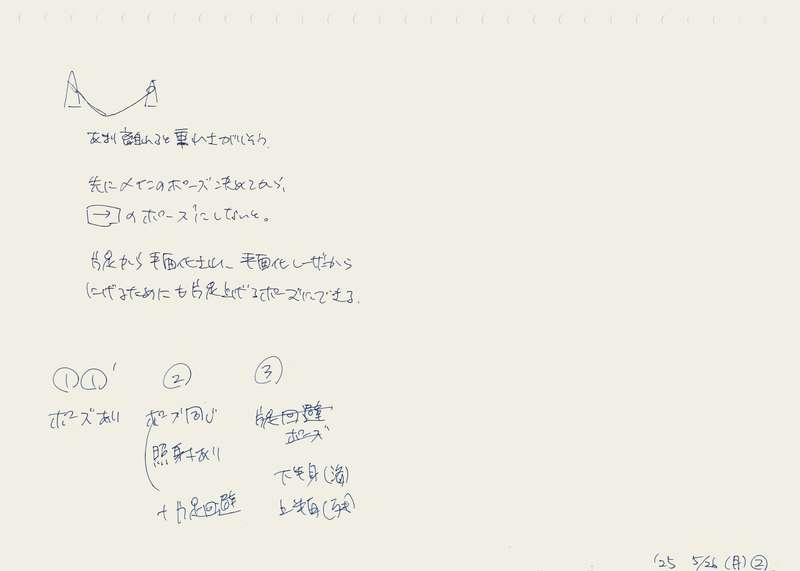 あまり離れると垂れ下がりそう。
先にメインのポーズ決めてから、
→のポーズにしないと。
片足から平面化 平面化レーザーから
にげるためにも片足上げるポーズにできる。
① ①' ② ③
ポーズあり ポーズ同じ 片足回避
ポーズ
照射あり
下半身(
+片足回避 上半身(
'25 5/26(月)②